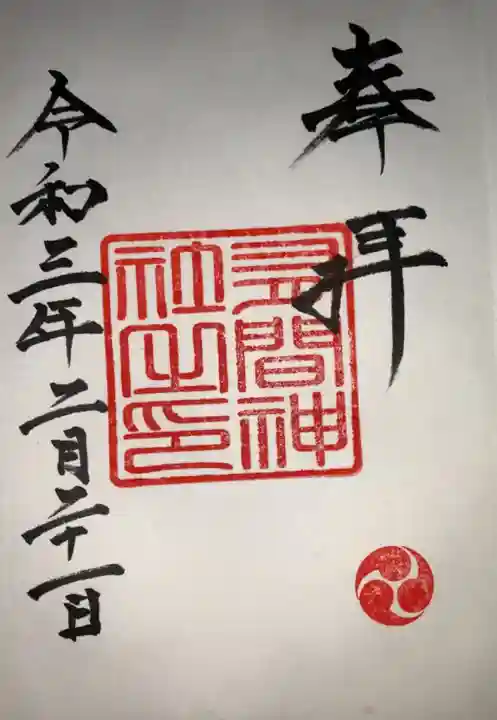 奉拝
間神
社之印
令和三年二月二十一日